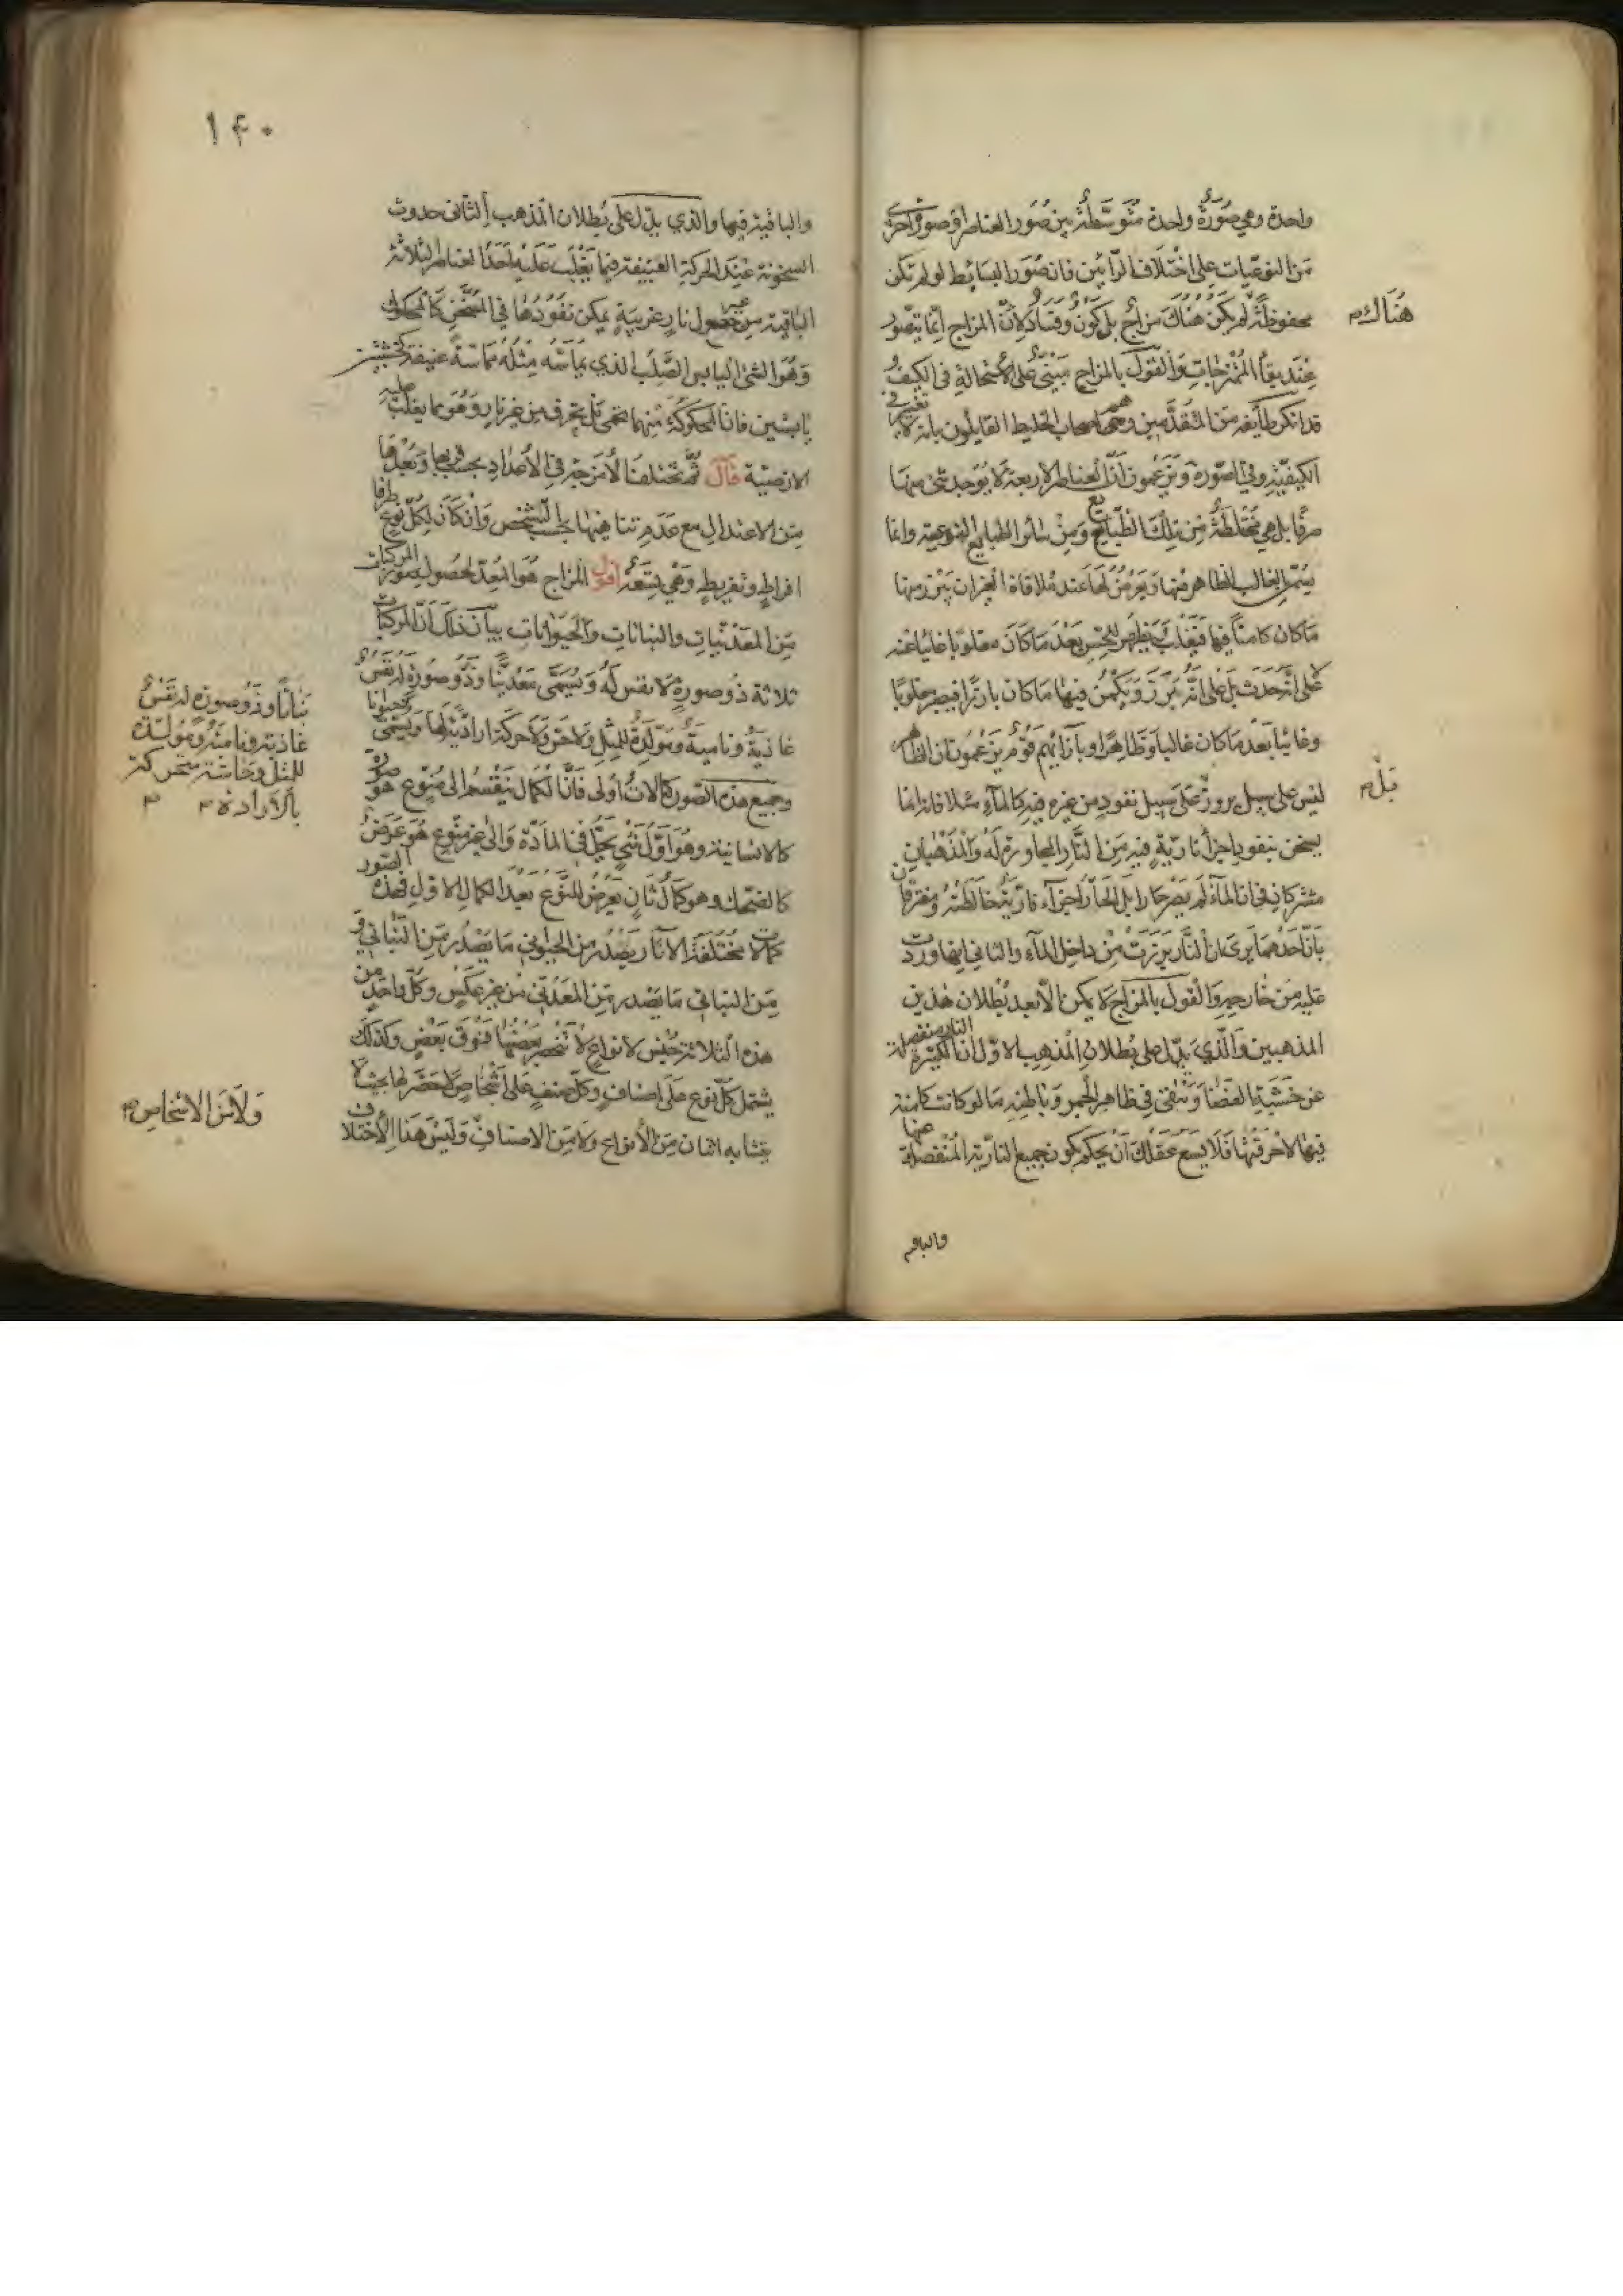 واحدة وهي صورة واحدة متوسطة بين صور العناصر او صورة اخرى
من النوعيات على اختلاف الرائين فان صور البسائط لو لم تكن
محفوظة لم يكن هناك مزاج بل كون وفساد لان المزاج انما يتصور
هناك
عند بقاء الممتزجات والقول بالمزاج مبني على الاستحالة في الكيف و
قد انكر طائفة من المتقدمين وهم اصحاب الخليط القايلون بانه لا تغير في
الكيفية وفي الصورة ويزعمون ان العناصر الاربعة لا يوجد شئ منها
صرفا بل هي مختلطة من تلك الطبايع ومن سائر الطبايع النوعية وانما
يسمى بالغالب الظاهر منها ويعرض لها عند ملاقاة الغير ان يبرز منها
ما كان كامنا فيها فيغلب ويظهر للحس بعد ما كان مغلوبا غايبا عنه
لا على انه حدث بل على انه برز ويكمن فيها ما كان بارزا فيصير مغلوبا
وغائبا بعد ما كان غالبا وظاهرا وبازائهم قوم يزعمون ان الظاهر
ليس على سبيل بروز على سبيل نفوذ من غيره فيه كالماء مثلا فانه انما
بل
يسخن بنفوذ اجزاء نارية فيه من النار المجاورة له والمذهبان
مشتركان في ان الماء لم يصر حارا بل الحار اجزاء نارية تخالطه ومفترقان
بان احدهما يرى ان النار برزت من داخل الماء والثاني انها وردت
عليه من خارجه والقول بالمزاج لا يمكن الا بعد بطلان هذين
المذهبين والذي يدل على بطلان المذهب الاول ان النار الكثيرة منفصلة
عن خشبة الغضا وتبقى في ظاهر الجمر وباطنه ما لو كانت كامنة
فيها لاحرقتها فلا يسع عقلك ان يحكم بكون جميع النارية المنفصلة عنها
والباقية
١٤٠
والباقية فيها والذي يدل على بطلان المذهب الثاني حدوث
السخونة عند الحركة العنيفة فيما يغلب عليه احد العناصر الثلاثة
الباقية من غير حصول نار غريبة يمكن نفوذها في المتسخن كالمحكوك
وهو الشئ اليابس الصلب الذي يماسه مثله مماسة عنيفة كخشبتين
يابستين فان المحكوكة منهما تحمى بل يحترق من غير نار وهو مما يغلب عليه
الارضية قال ثم تختلف الامزجة في الاعداد بحسب قربها وبعدها
من الاعتدال مع عدم تناهيها بحسب الشخص وان كان لكل نوع طرفا
افراط وتفريط وهي تسعة اقول المزاج هو المعد لحصول صور المركبات
من المعدنيات والنباتات والحيوانات بيان ذلك ان المركبات
ثلاثة ذو صورة لا نفس له ويسمى معدنيا وذو صورة له نفس
غاذية ونامية ومولدة للمثل ولا حس ولا حركة ارادية لها ويسمى حيوانا
نباتا وذو صورة له نفس
غاذية ونامية ومولدة
للمثل وحاسة متحركة
بالارادة
وجميع هذه الصور كمالات اولى فان الكمال ينقسم الى منوع هو صورة
كالانسانية وهو اول شئ يحل في المادة والى غير منوع هو عرض
كالضحك وهو كمال ثان يعرض للنوع بعد الكمال الاول فهذه الصور
كمالات مختلفة الآثار يصدر من الحيواني ما يصدر من النباتي و
من النباتي ما يصدر من المعدني من غير عكس وكل واحد من
هذه الثلاثة جنس لانواع لا تنحصر بعضها فوق بعض وكذلك
يشتمل كل نوع على اصناف وكل صنف على اشخاص لا حصر لها بحيث لا
يتشابه اثنان من الانواع ولا من الاصناف وليس هذا الاختلاف
ولا من الاشخاص